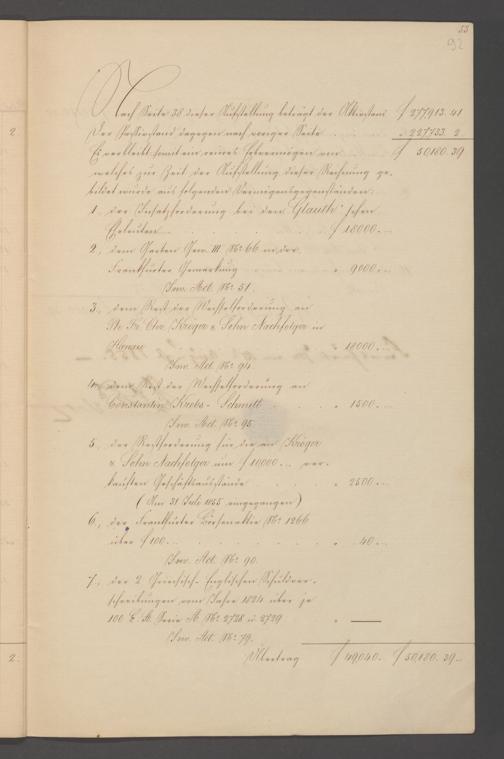 55
92
Nach Seite 38 dieser Aufstellung beträgt der Aktivstand f 277913. 41
Der Passivstand dagegen nach voriger Seite . . . . " 227733. 2.
Es verbleibt somit ein reines Activvermögen von f 50180. 39
welches zur Zeit der Aufstellung dieser Rechnung ge-
bildet wurde aus folgenden Vermögensgegenständen:
1., der Insatzforderung bei den Glauth'schen
Eheleuten f 18000. --
2., dem Garten Gew. III. No 66 in der
Frankfurter Gemarkung " 9000. --
Inv. Act. No 51.
3., dem Rest der Wechselforderung an
Kröger & Sohn Nachfolger in
Hanau " 18000. --
Inv. Act. No 94.
4., dem Rest der Wechselforderung an
Constantin Krebs-Schmitt " 1500. --
Inv. Act. No 95.
5., der Restforderung für die an Kröger
& Sohn Nachfolger um f 10,000. -- ver-
kauften Geschäftsausstände " 2500. --
(Am 31 Juli 1855 eingegangen)
6., der Frankfurter Börsenaktie No 1266
über f 100. -- " 40. --
Inv. Act. No 90.
7., der 2 Griechisch-Englischen Schuldver-
schreibungen vom Jahre 1824 über je
100 £. St. Serie A. No 2728 u. 2729 " —
Inv. Act. No 79.
Übertrag f 49,040. f 50,180. 39.
2
2.